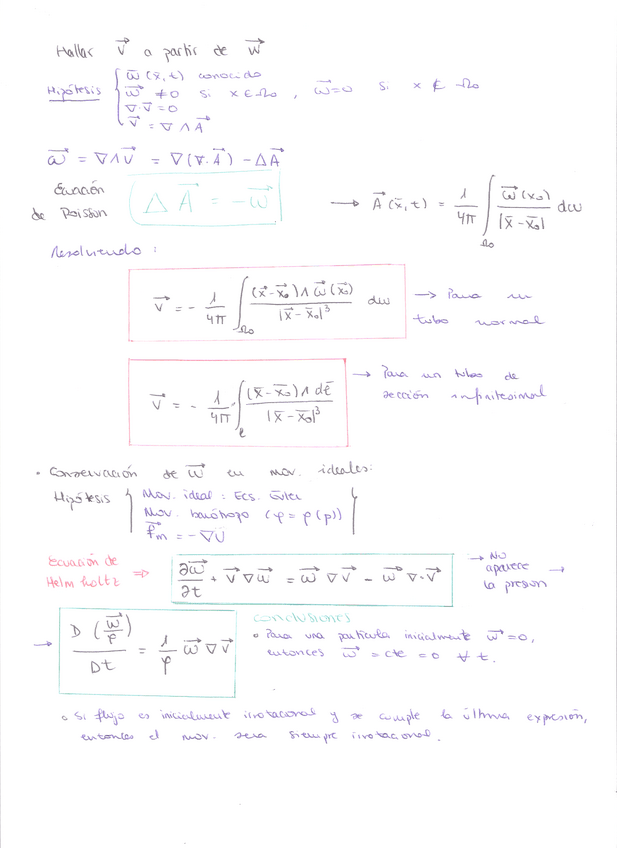 Hallar v⃗ a partir de w⃗
Hipótesis { ω⃗ (x̄, t) conocido
ω⃗ ≠ 0 si x ∈ Ω₀ , ω⃗=0 si x ∉ Ω₀
∇·v⃗ = 0
v⃗ = ∇ ∧ A⃗
ω⃗ = ∇∧v⃗ = ∇(∇·A⃗) - ΔA⃗
Ecuación de Poisson ( Δ A⃗ = -ω⃗ ) → A⃗ (x̄, t) = 1/4π ∫_Ω₀ ω⃗(x₀)/|x̄ - x̄₀| dω
Resolviendo :
v⃗ = - 1/4π ∫_Ω₀ (x⃗-x⃗₀) ∧ ω⃗(x⃗₀)/|x̄ - x̄₀|³ dω → Para un tubo normal
v⃗ = - 1/4π · ∫_ℓ (x̄ - x̄₀) ∧ dℓ̄/|x̄ - x̄₀|³ → Para un tubo de sección infinitesimal
• Conservación de ω⃗ en mov. ideales:
Hipótesis { Mov. ideal : Ecs. Euler
Mov. barótropo (ρ = ρ(p))
f⃗m = -∇U
Ecuación de Helmholtz ⇒ ∂ω⃗/∂t + v⃗ ∇ω⃗ = ω⃗ ∇v⃗ - ω⃗ ∇·v⃗ → No aparece la presion →
→ D (ω⃗/ρ)/Dt = 1/ρ ω⃗ ∇v⃗
conclusiones
• Para una partícula inicialmente ω⃗=0,
entonces ω⃗ = cte = 0 ∀ t.
• Si flujo es inicialmente irrotacional y se cumple la última expresión,
entonces el mov. sera siempre irrotacional.